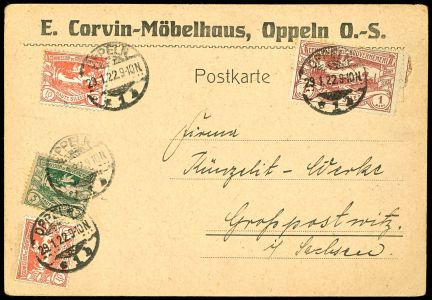 E. Corvin-Möbelhaus, Oppeln O.-S.
OPPELN
29.1.22.9-10N.
1
Postkarte
OPPELN
29.1.22.9-10N.
1
1
OPPELN
5
Firma
Künzelit-Werke
Großpostwitz
i/ Sachsen
OPPELN
29.1.22.9-10N.
1